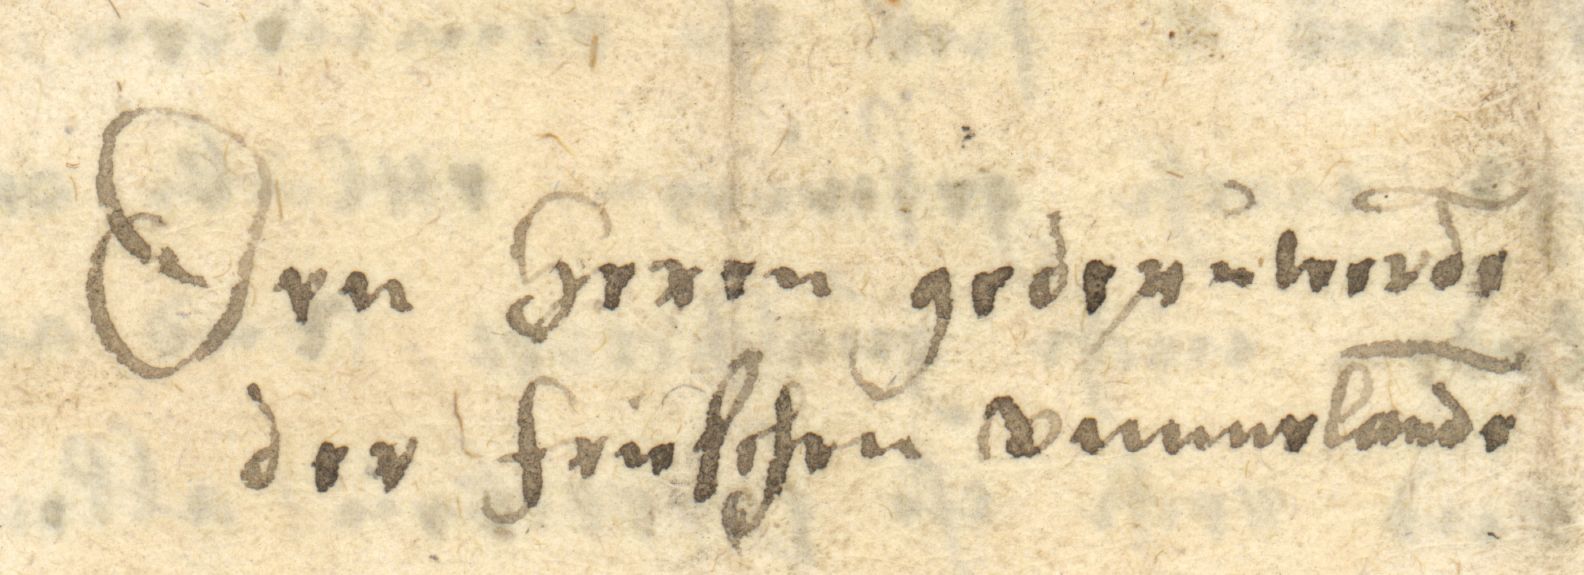 Den Heren gedeputeerde
der freeschen Ummelande